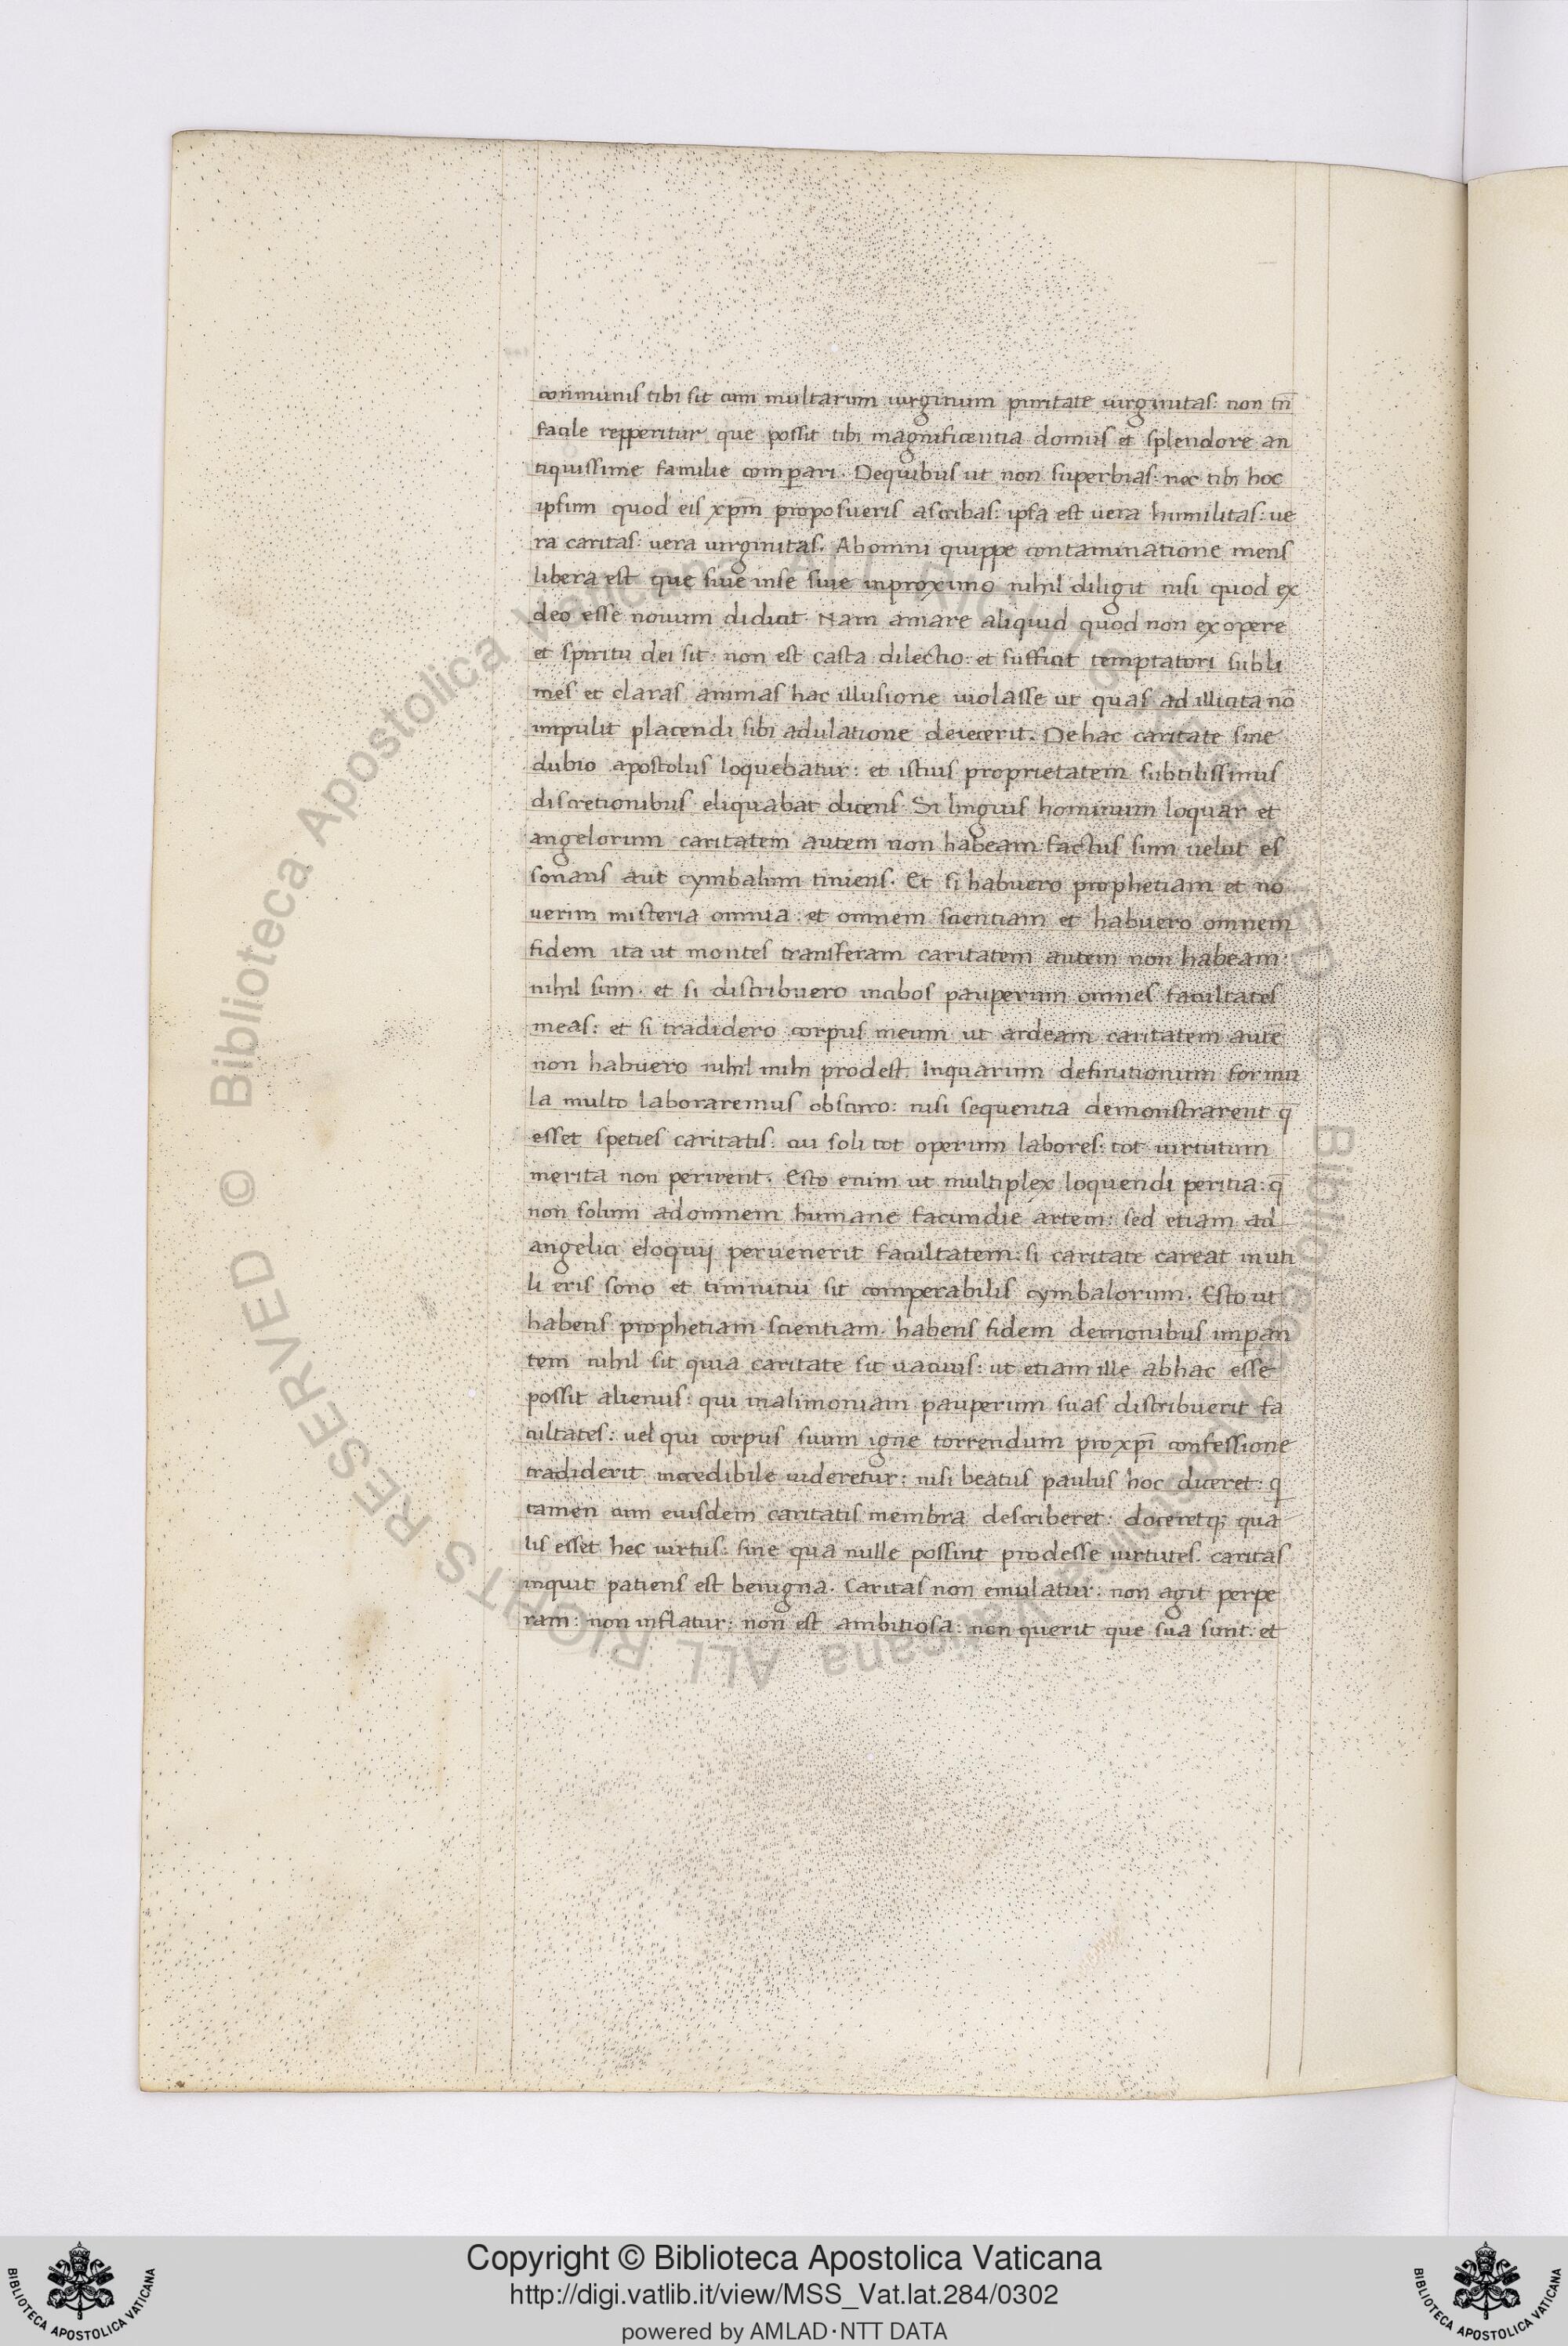 conmunis tibi sit cum multarum uirginum puritate uirginitas: non tn̄
facile repperitur que possit tibi magnificentia domus et splendore an
tiquissime familie comꝑari. Dequibus ut non superbias: nec tibi hoc
ipsum quod eis xp̄m proposueris ascribas: ipsa est uera humilitas: ue
ra caritas: uera uirginitas. Abomni quippe contaminatione mens
libera est que siue inse siue inproximo nihil diligit nisi quod ex
deo esse nouum didicit. Nam amare aliquid quod non ex opere
et spiritu dei sit: non est casta dilectio: et sufficit temptatori subli
mes et claras animas hac illusione uiolasse ut quas ad illicita nō
impulit placendi sibi adulatione deiecerit. Dehac caritate sine
dubio apostolus loquebatur: et istius proprietatem subtilissimis
discretionibus eliquabat dicens. Si linguis hominum loquar et
angelorum caritatem autem non habeam: factus sum uelut es
sonans aut cymbalum tiniens. Et si habuero prophetiam et no
uerim misteria omnia: et omnem scientiam et habuero omnem
fidem ita ut montes transferam caritatem autem non habeam:
nihil sum. et si distribuero incibos pauperum omnes facultates
meas: et si tradidero corpus meum ut ardeam caritatem autē
non habuero nihil mihi prodest. Inquarum definitionum formu
la multo laboraremus obscuro: nisi sequentia demonstrarent q̄
esset speties caritatis: cui soli tot operum labores: tot uirtutum
merita non perirent. Esto enim ut multiplex loquendi peritia: q̄
non solum adomnem humane facundie artem: sed etiam ad
angelici eloquij peruenerit facultatem: si caritate careat inuti
li eris sono et tinnitui sit comperabilis cymbalorum. Esto ut
habens prophetiam. scientiam. habens fidem demonibus impan
tem nihil sit quia caritate sit uacuus: ut etiam ille abhac esse
possit alienus: qui inalimoniam pauperum suas distribuerit fa
cultates: uel qui corpus suum igne torrendum pro xp̄i confessione
tradiderit incredibile uideretur: nisi beatus paulus hoc diceret: q̄
tamen cum eiusdem caritatis membra describeret: doceretq; qua
lis esset hec uirtus: sine qua nulle possint prodesse uirtutes. caritas
inquit patiens est benigna. Caritas non emulatur: non agit perpe
ram: non inflatur: non est ambitiosa: non querit que sua sunt: et
© Biblioteca Apostolica Vaticana ALL RIGHTS RESERVED
© Biblioteca Apostolica Vaticana ALL RIGHTS RESERVED
Copyright © Biblioteca Apostolica Vaticana
http://digi.vatlib.it/view/MSS_Vat.lat.284/0302
powered by AMLAD·NTT DATA
BIBLIOTECA APOSTOLICA VATICANA
BIBLIOTECA APOSTOLICA VATICANA